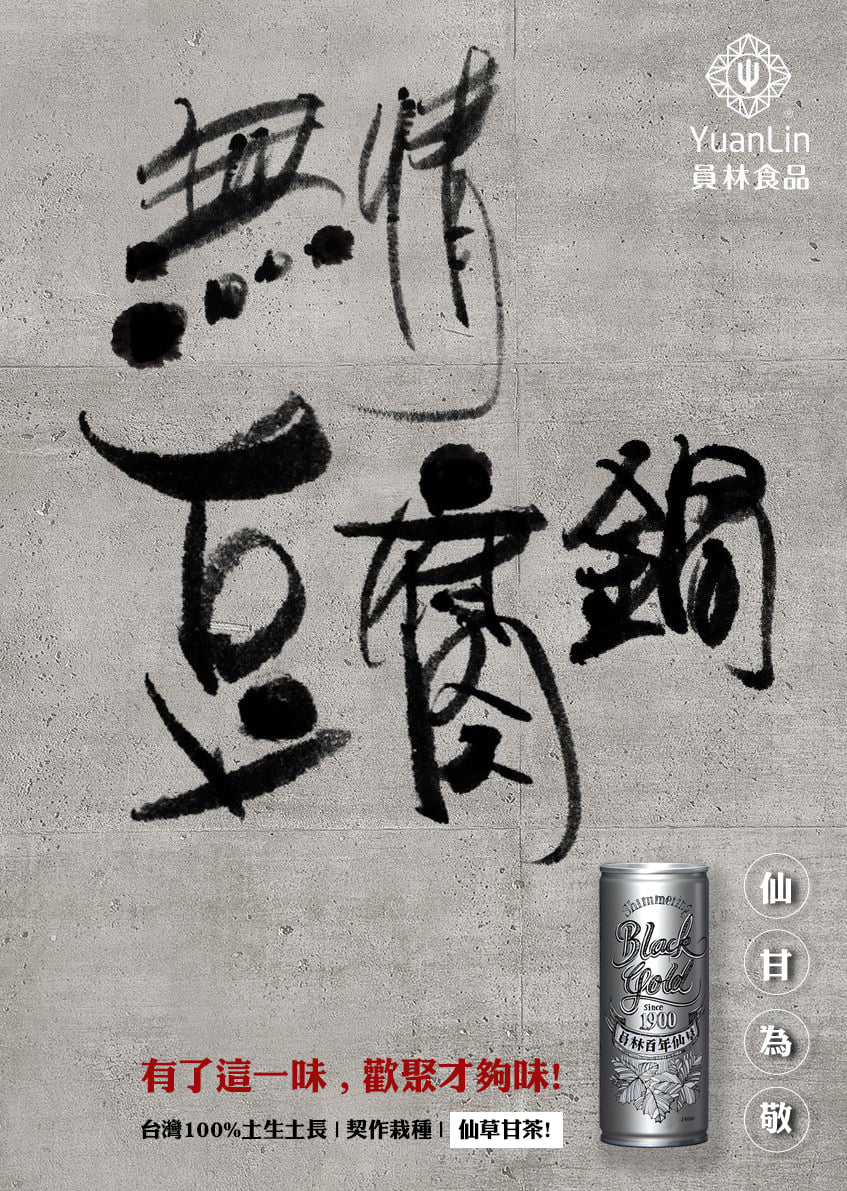 無情
豆腐鍋
YuanLin
員林食品
Shimmering
Black
Gold
Since
1900
員林百年仙草
240ml
仙甘為敬
有了這一味，歡聚才夠味!
台灣100%土生土長 | 契作栽種 | 仙草甘茶!